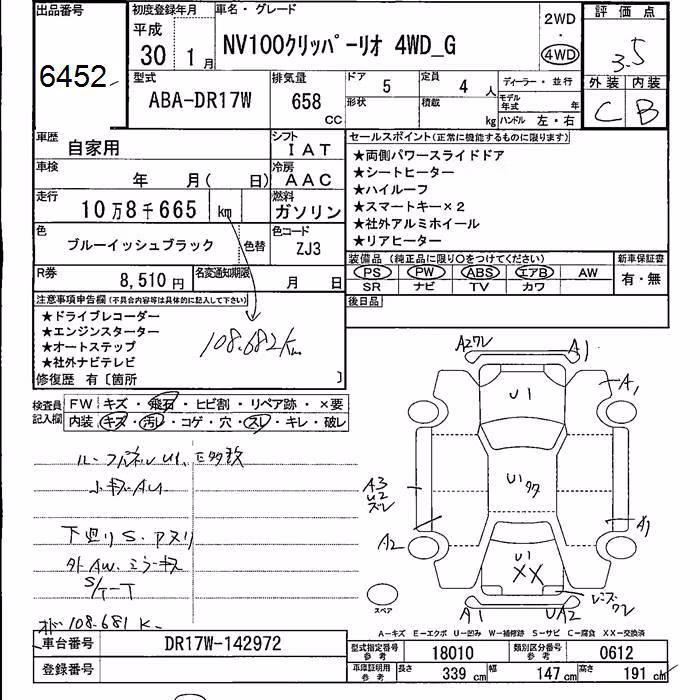 出品番号
6452
初度登録年月
平成
30年 1月
車名・グレード
NV100クリッパーリオ 4WD_G
2WD
・
4WD
評価点
3.5
型式
ABA-DR17W
排気量
658
CC
ドア
5
定員
4人
形状
積載
kg
ディーラー・並行
モデル年式 年
ハンドル 左・右
外装 内装
C B
車歴
自家用
シフト
IAT
車検
年 月( 日)
冷房
AAC
走行
10万8千665 km
燃料
ガソリン
色
ブルーイッシュブラック
色替
色コード
ZJ3
R券
8,510円
名変通知期限
月 日
セールスポイント(正常に機能するものに限ります)
★両側パワースライドドア
★シートヒーター
★ハイルーフ
★スマートキー×2
★社外アルミホイール
★リアヒーター
装備品 (純正品に限り○をつけてください)
PS PW ABS エアB AW
SR ナビ TV カワ
新車保証書
有・無
後日品
注意事項申告欄(不具合内容等は具体的に記入して下さい)
★ドライブレコーダー
★エンジンスターター
★オートステップ
★社外ナビテレビ
108.682Km
修復歴 有〔箇所 〕
検査員
記入欄
FW キズ・飛石・ヒビ割・リペア跡・×要
内装 キズ・汚レ・コゲ・穴・スレ・キレ・破レ
ルーフパネルU1、E多数
小キズAU
下廻りS.アヌリ
外AW.ミラーキズ
S/T-T
108.681K
A2ワレ
A1
U1
A1
A3
U2
ズレ
U1
A2
A1
U1
XX
スペア
A1
UA2
レンズワレ
A−キズ E−エクボ U−凹み W−補修跡 S−サビ C−腐食 XX−交換済
車台番号
DR17W-142972
登録番号
型式指定番号
参考
18010
類別区分番号
参考
0612
車庫証明用
参考
長さ 339 cm
幅 147 cm
高さ 191 cm